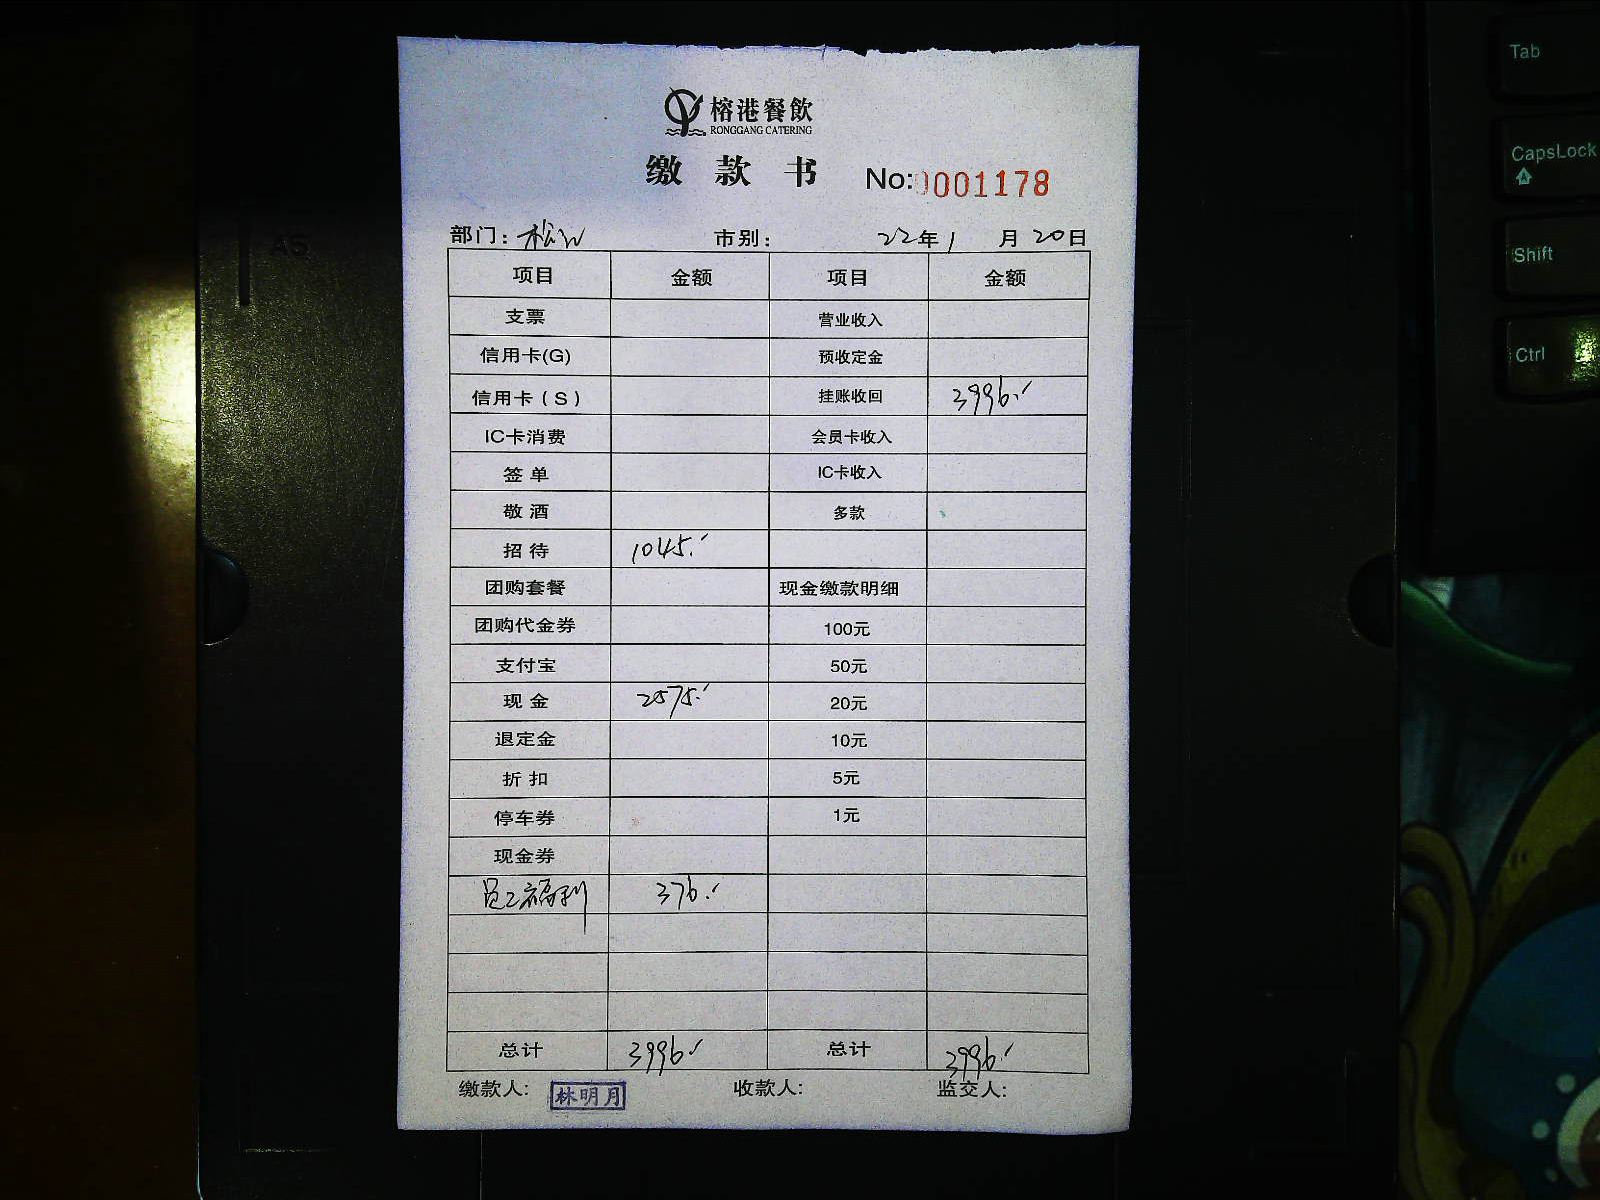 榕港餐飲
RONGGANG CATERING
缴款书 No:0001178
部门: 松江 市别: 22年1月20日
项目 金额 项目 金额
支票 营业收入
信用卡(G) 预收定金
信用卡(S) 挂账收回 3996.
IC卡消费 会员卡收入
签单 IC卡收入
敬酒 多款
招待 1045.
团购套餐 现金缴款明细
团购代金券 100元
支付宝 50元
现金 2575. 20元
退定金 10元
折扣 5元
停车券 1元
现金券
员工福利 376.
总计 3996. 总计 3996.
缴款人: 林明月 收款人: 监交人:
Tab
CapsLock
Shift
Ctrl
A5